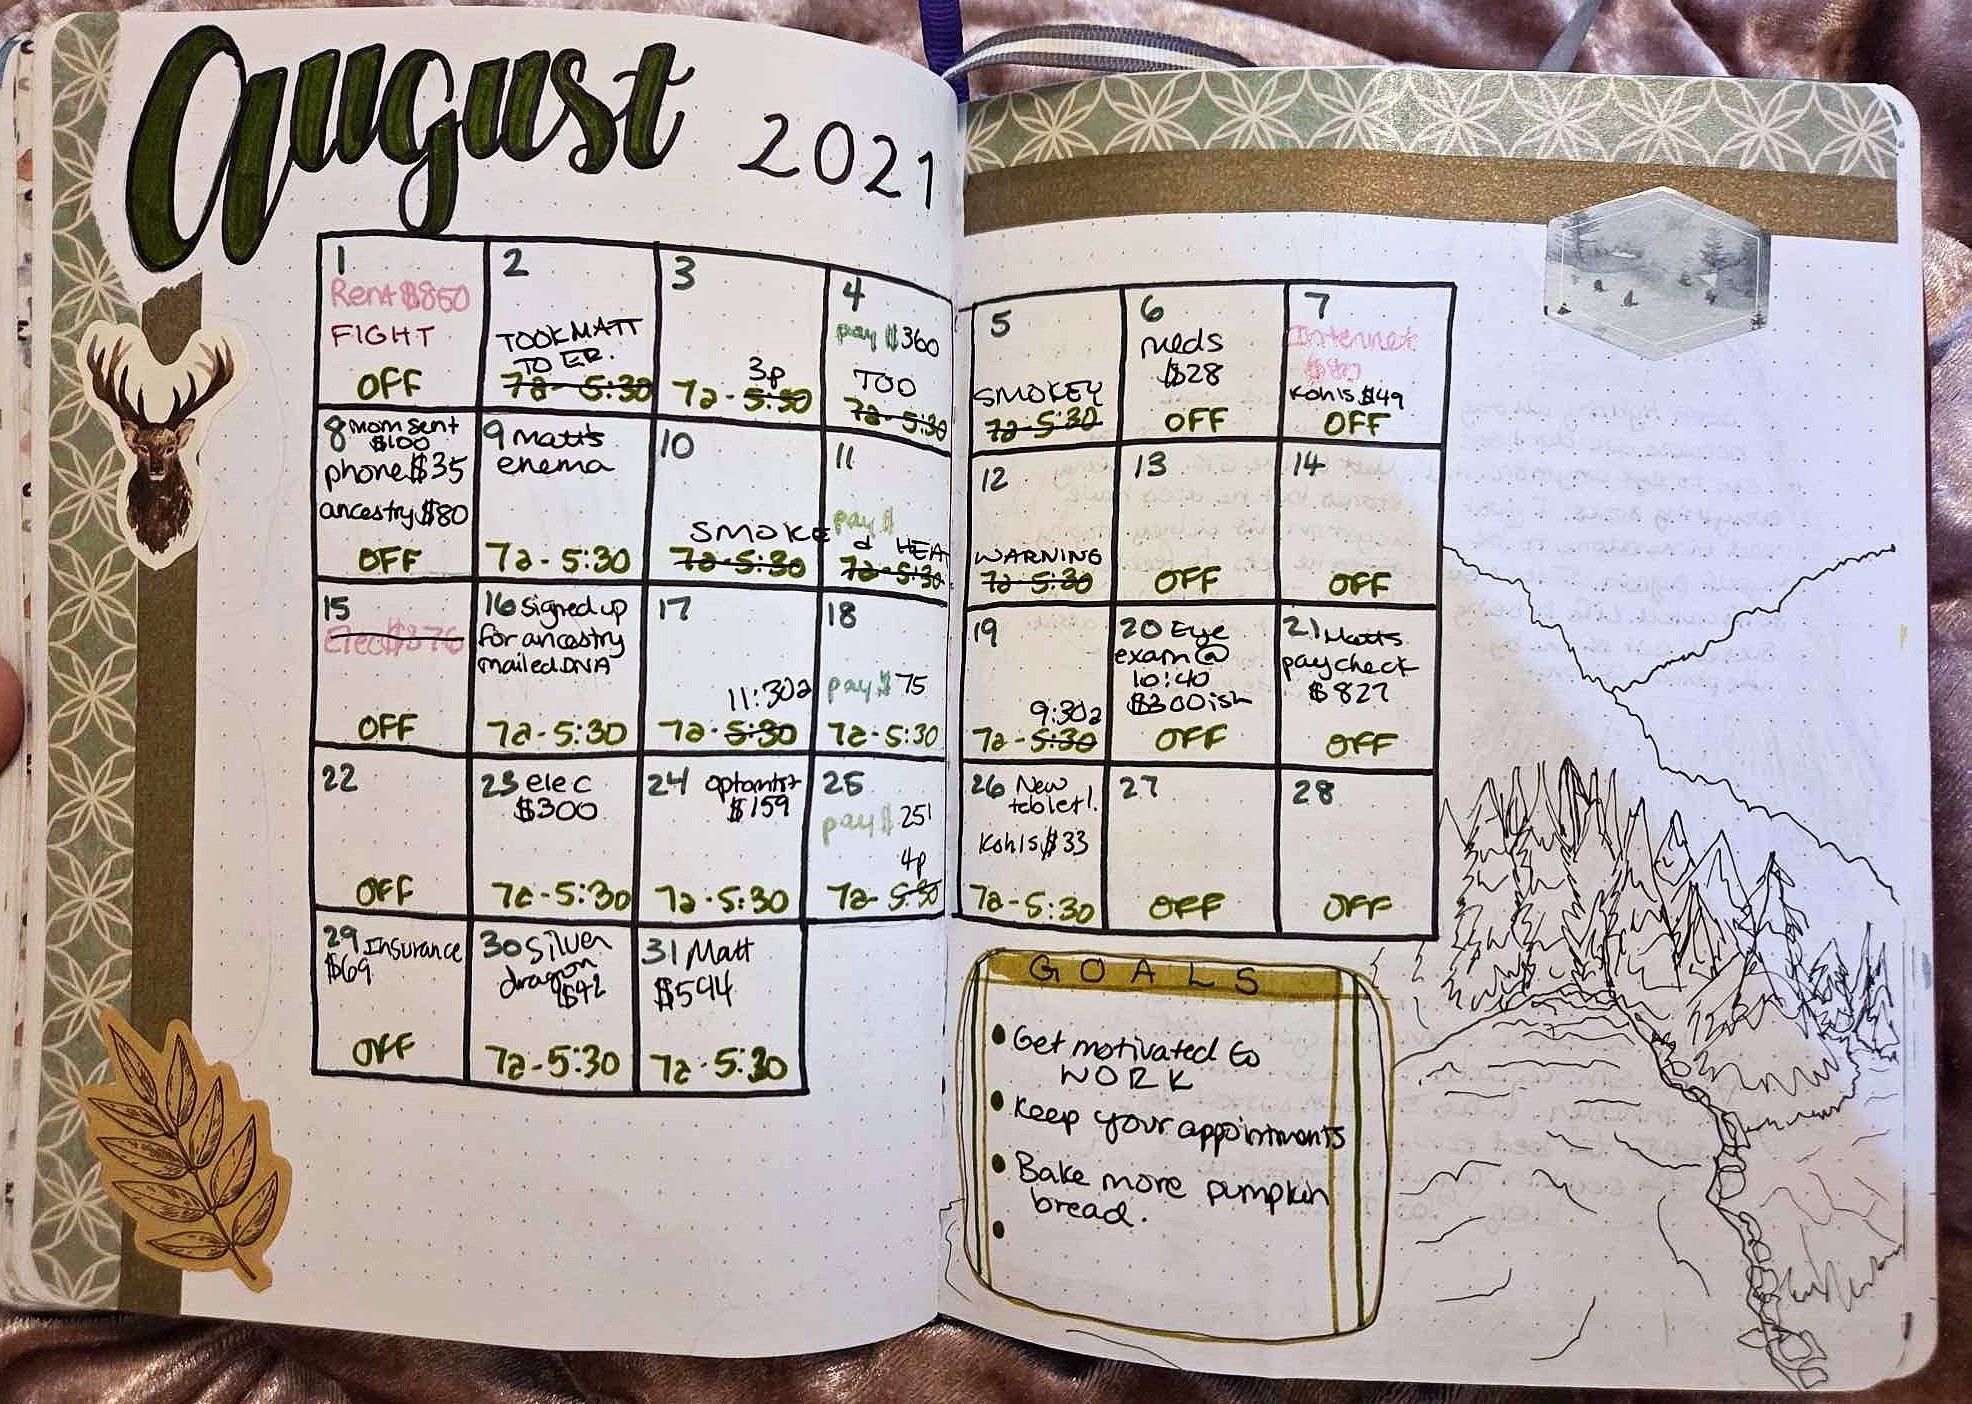 August 2021
1
Rent $850
FIGHT
OFF
2
TOOK MATT
TO ER.
7a - 5:30
3
3p
7a - 5:30
4
pay $360
TOO
7a - 5:30
5
SMOKEY
7a - 5:30
6
meds
$28
OFF
7
Internet
Kohls $49
OFF
8 Mom sent
$100
phone $35
ancestry $80
OFF
9 Matt's
enema
7a - 5:30
10
SMOKE
7a - 5:30
11
pay $
d HEA
7a - 5:30
12
WARNING
7a - 5:30
13
OFF
14
OFF
15
Elec $376
OFF
16 Signed up
for ancestry
mailed DNA
7a - 5:30
17
11:30a
7a - 5:30
18
pay $75
7a - 5:30
19
9:30a
7a - 5:30
20 Eye
exam @
10:40
$300ish
OFF
21 Matts
paycheck
$827
OFF
22
OFF
23 elec
$300
7a - 5:30
24
$159
7a - 5:30
25
pay $251
4p
7a - 5:30
26 New
tablet!
Kohls $33
7a - 5:30
27
OFF
28
OFF
29 Insurance
$69
OFF
30 Silver
dragon
$42
7a - 5:30
31 Matt
$594
7a - 5:30
GOALS
• Get motivated to
WORK
• Keep your appointments
• Bake more pumpkin
bread.
•